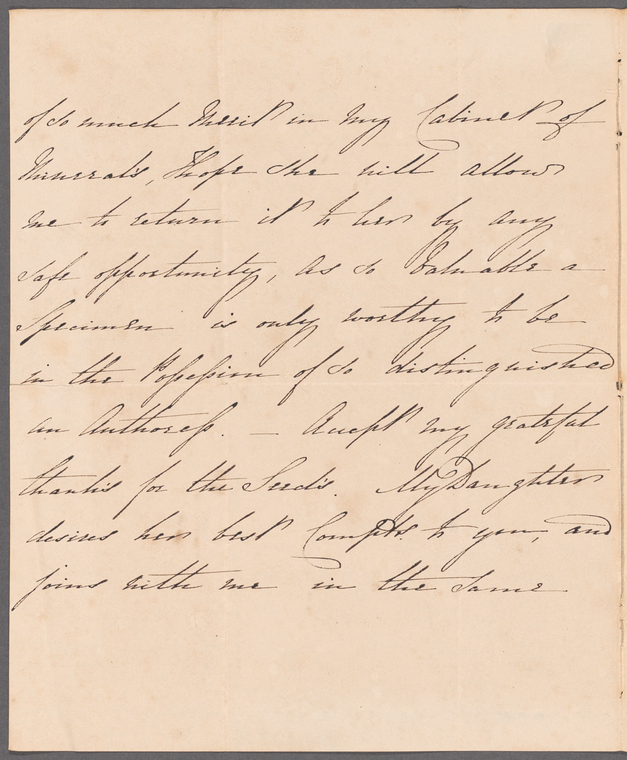 of so much Merit in my Cabinet of
Minerals, I hope she will allow
me to return it to her by any
safe opportunity, as so Valuable a
Specimen is only worthy to be
in the Possession of so distinguished
an Authoress. — Accept my grateful
thanks for the Seeds. My Daughter
desires her best Compts. to you, and
joins with me in the same